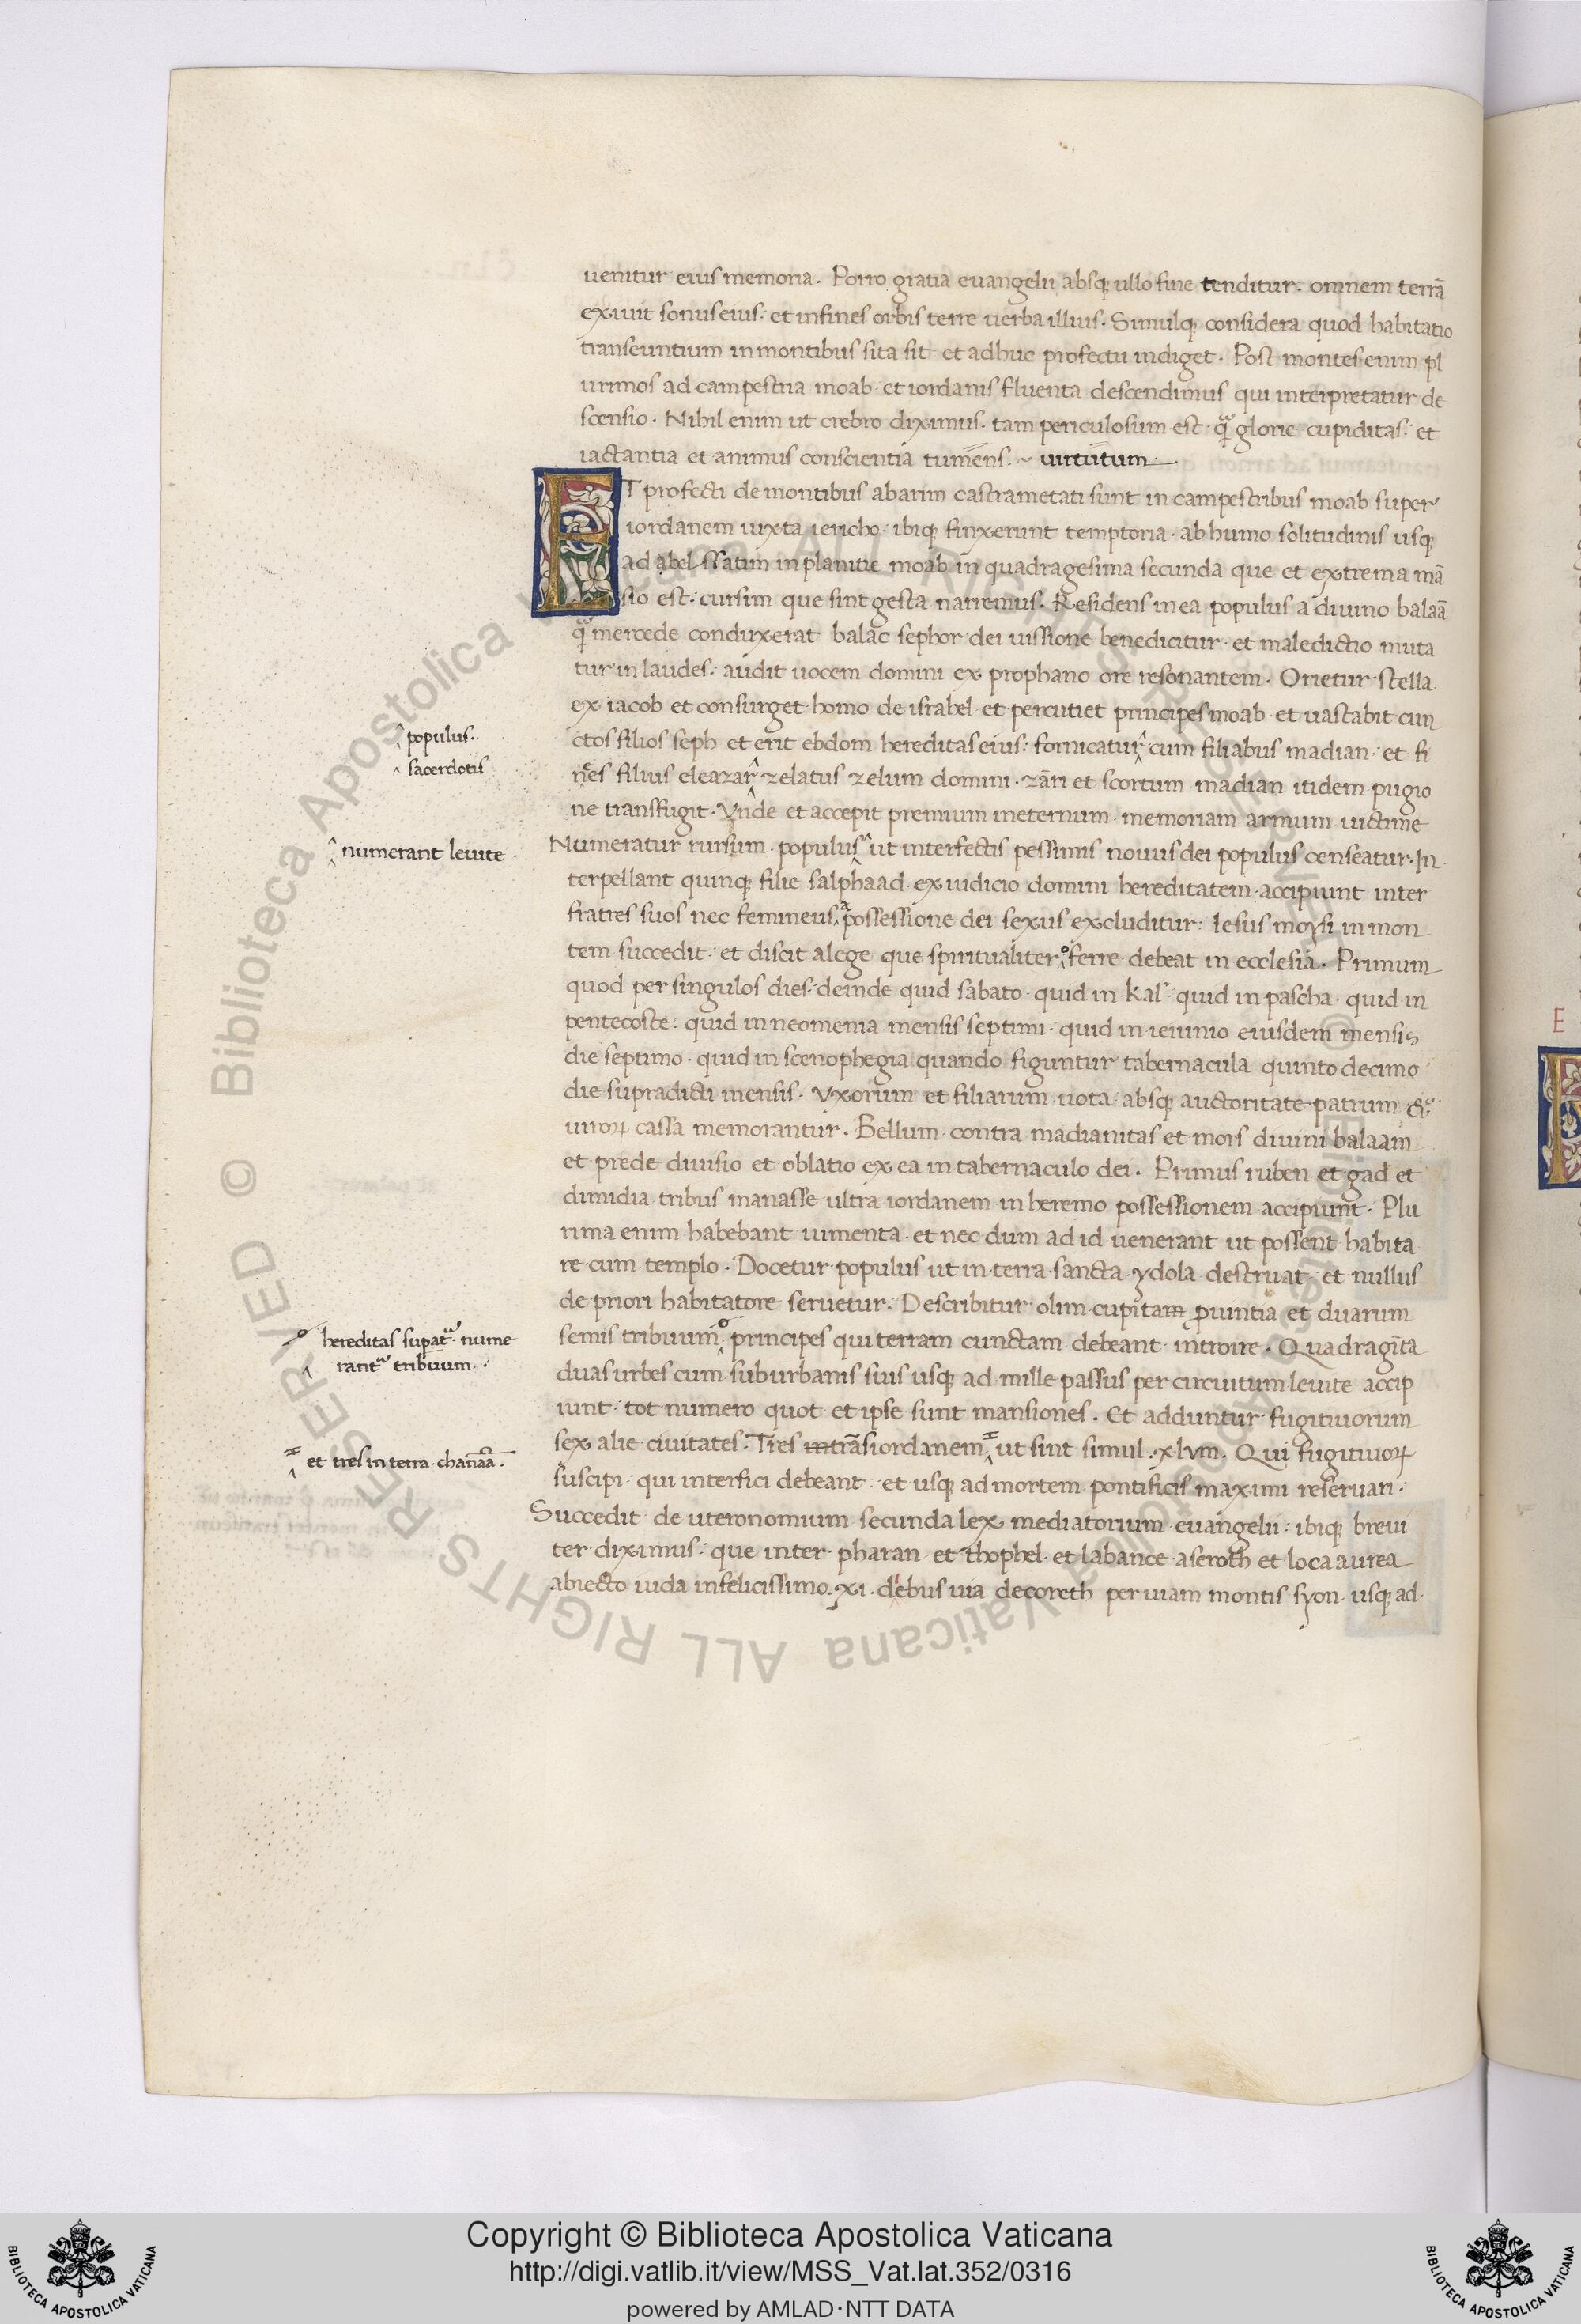 uenitur eius memoria. Porro gratia euangelii absq; ullo fine tenditur. omnem terrā
exiuit sonus eius: et in fines orbis terre uerba illius. Simulq; considera quod habitatio
transeuntium in montibus sita sit et adhuc profectu indiget. Post montes enim pl
urimos ad campestria moab et iordanis fluenta descendimus qui interpretatur de
scensio. Nihil enim ut crebro diximus. tam periculosum est qᷓ glorie cupiditas: et
iactantia et animus conscientia tumens. ~ uirtutum
ET profecti de montibus abarim castrametati sunt in campestribus moab super
iordanem iuxta iericho. ibiq; finxerunt temptoria. ab humo solitudinis usq;
ad abel ssatim in planitie moab in quadragesima secunda que et extrema mā
sio est. cursim que sint gesta narremus. Residens in ea populus a diuino balaā
qᷓ mercede conduxerat balac sephor dei uissione benedicitur et maledictio muta
tur in laudes. audit uocem domini ex prophano ore resonantem. Orietur stella
ex iacob et consurget homo de israhel et percutiet principes moab et uastabit cun
ctos filios seph et erit ebdom hereditas eius: fornicatur cum filiabus madian et fi
nes filius eleazar zelatus zelum domini. zāri et scortum madian itidem pugio
ne transfugit. Vnde et accepit premium in eternum memoriam armum uictime
Numeratur rursum populus ut interfectis pessimis nouus dei populus censeatur. In
terpellant quinq; filie salphaad ex iudicio domini hereditatem accipiunt inter
fratres suos nec femineus a possessione dei sexus excluditur: Iesus moysi in mon
tem succedit et discit a lege que spiritualiter offerre debeat in ecclesia. Primum
quod per singulos dies: deinde quid sabato quid in kal quid in pascha quid in
pentecoste: quid in neomenia mensis septimi quid in ieiunio eiusdem mensis
die septimo. quid in scenophegia quando figuntur tabernacula quinto decimo
die supradicti mensis. Vxorum et filiarum uota absq; auctoritate patrum &
uiroꝝ cassa memorantur. Bellum contra madianitas et mors diuini balaam
et prede diuisio et oblatio ex ea in tabernaculo dei. Primus ruben et gad et
dimidia tribus manasse ultra iordanem in heremo possessionem accipiunt. Plu
rima enim habebant iumenta et nec dum ad id uenerant ut possent habita
re cum templo. Docetur populus ut in terra sancta ydola destruat et nullus
de priori habitatore seruetur. Describitur olim cupitam ꝓuintia et duarum
semis tribuum principes qui terram cunctam debeant introire. Quadraginta
duas urbes cum suburbanis suis usq; ad mille passus per circuitum leuite accip
iunt tot numero quot et ipse sunt mansiones. Et adduntur fugitiuorum
sex alie ciuitates. Tres in trāsiordanem ut sint simul .xlvııı. Qui fugitiuoꝝ
suscipi qui interfici debeant et usq; ad mortem pontificis maximi reseruari:
Succedit de uteronomium secunda lex mediatorium euangelii: ibiq; breui
ter diximus: que inter pharan et thophel et laban ce aseroth et loca aurea
abiecto iuda infelicissimo. xı. diebus uia de coreth per uiam montis syon usq; ad
populus.
sacerdotis
numerant leuite
hereditas supatᷓ nume
rantᷓ tribuum.
et tres in terra chanāā.
E
Copyright © Biblioteca Apostolica Vaticana
http://digi.vatlib.it/view/MSS_Vat.lat.352/0316
powered by AMLAD·NTT DATA
BIBLIOTECA APOSTOLICA VATICANA
BIBLIOTECA APOSTOLICA VATICANA
© Biblioteca Apostolica Vaticana ALL RIGHTS RESERVED